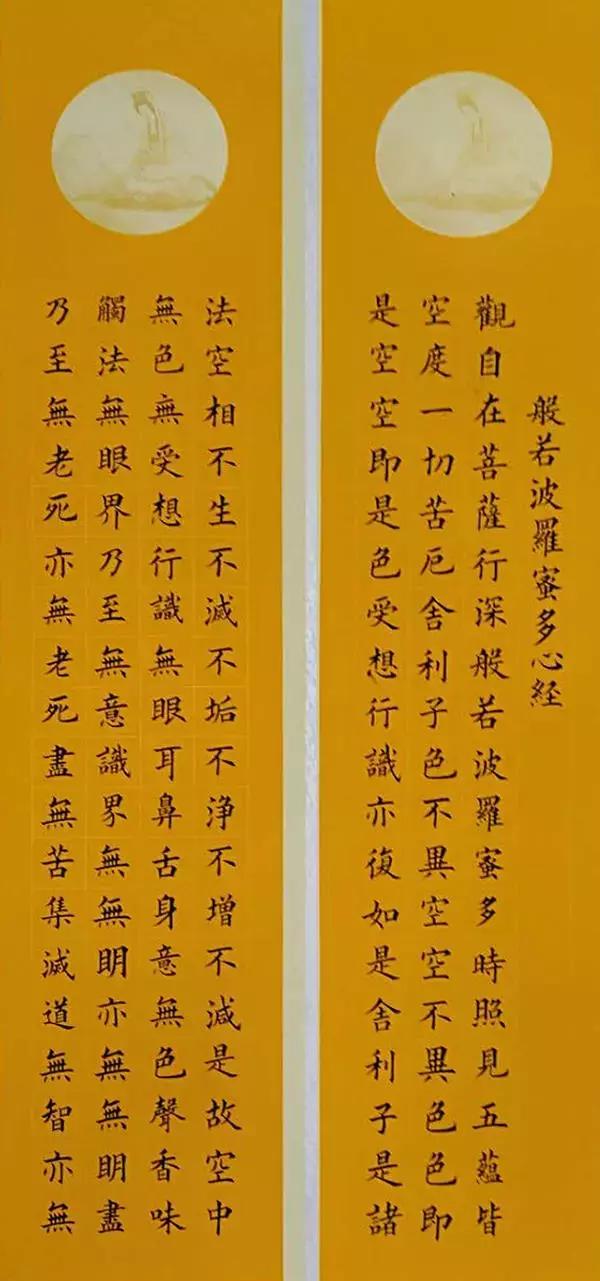 般若波羅蜜多心経
觀自在菩薩行深般若波羅蜜多時照見五蘊皆
空度一切苦厄舍利子色不異空空不異色色即
是空空即是色受想行識亦復如是舍利子是諸
法空相不生不滅不垢不浄不增不減是故空中
無色無受想行識無眼耳鼻舌身意無色聲香味
觸法無眼界乃至無意識界無無明亦無無明盡
乃至無老死亦無老死盡無苦集滅道無智亦無